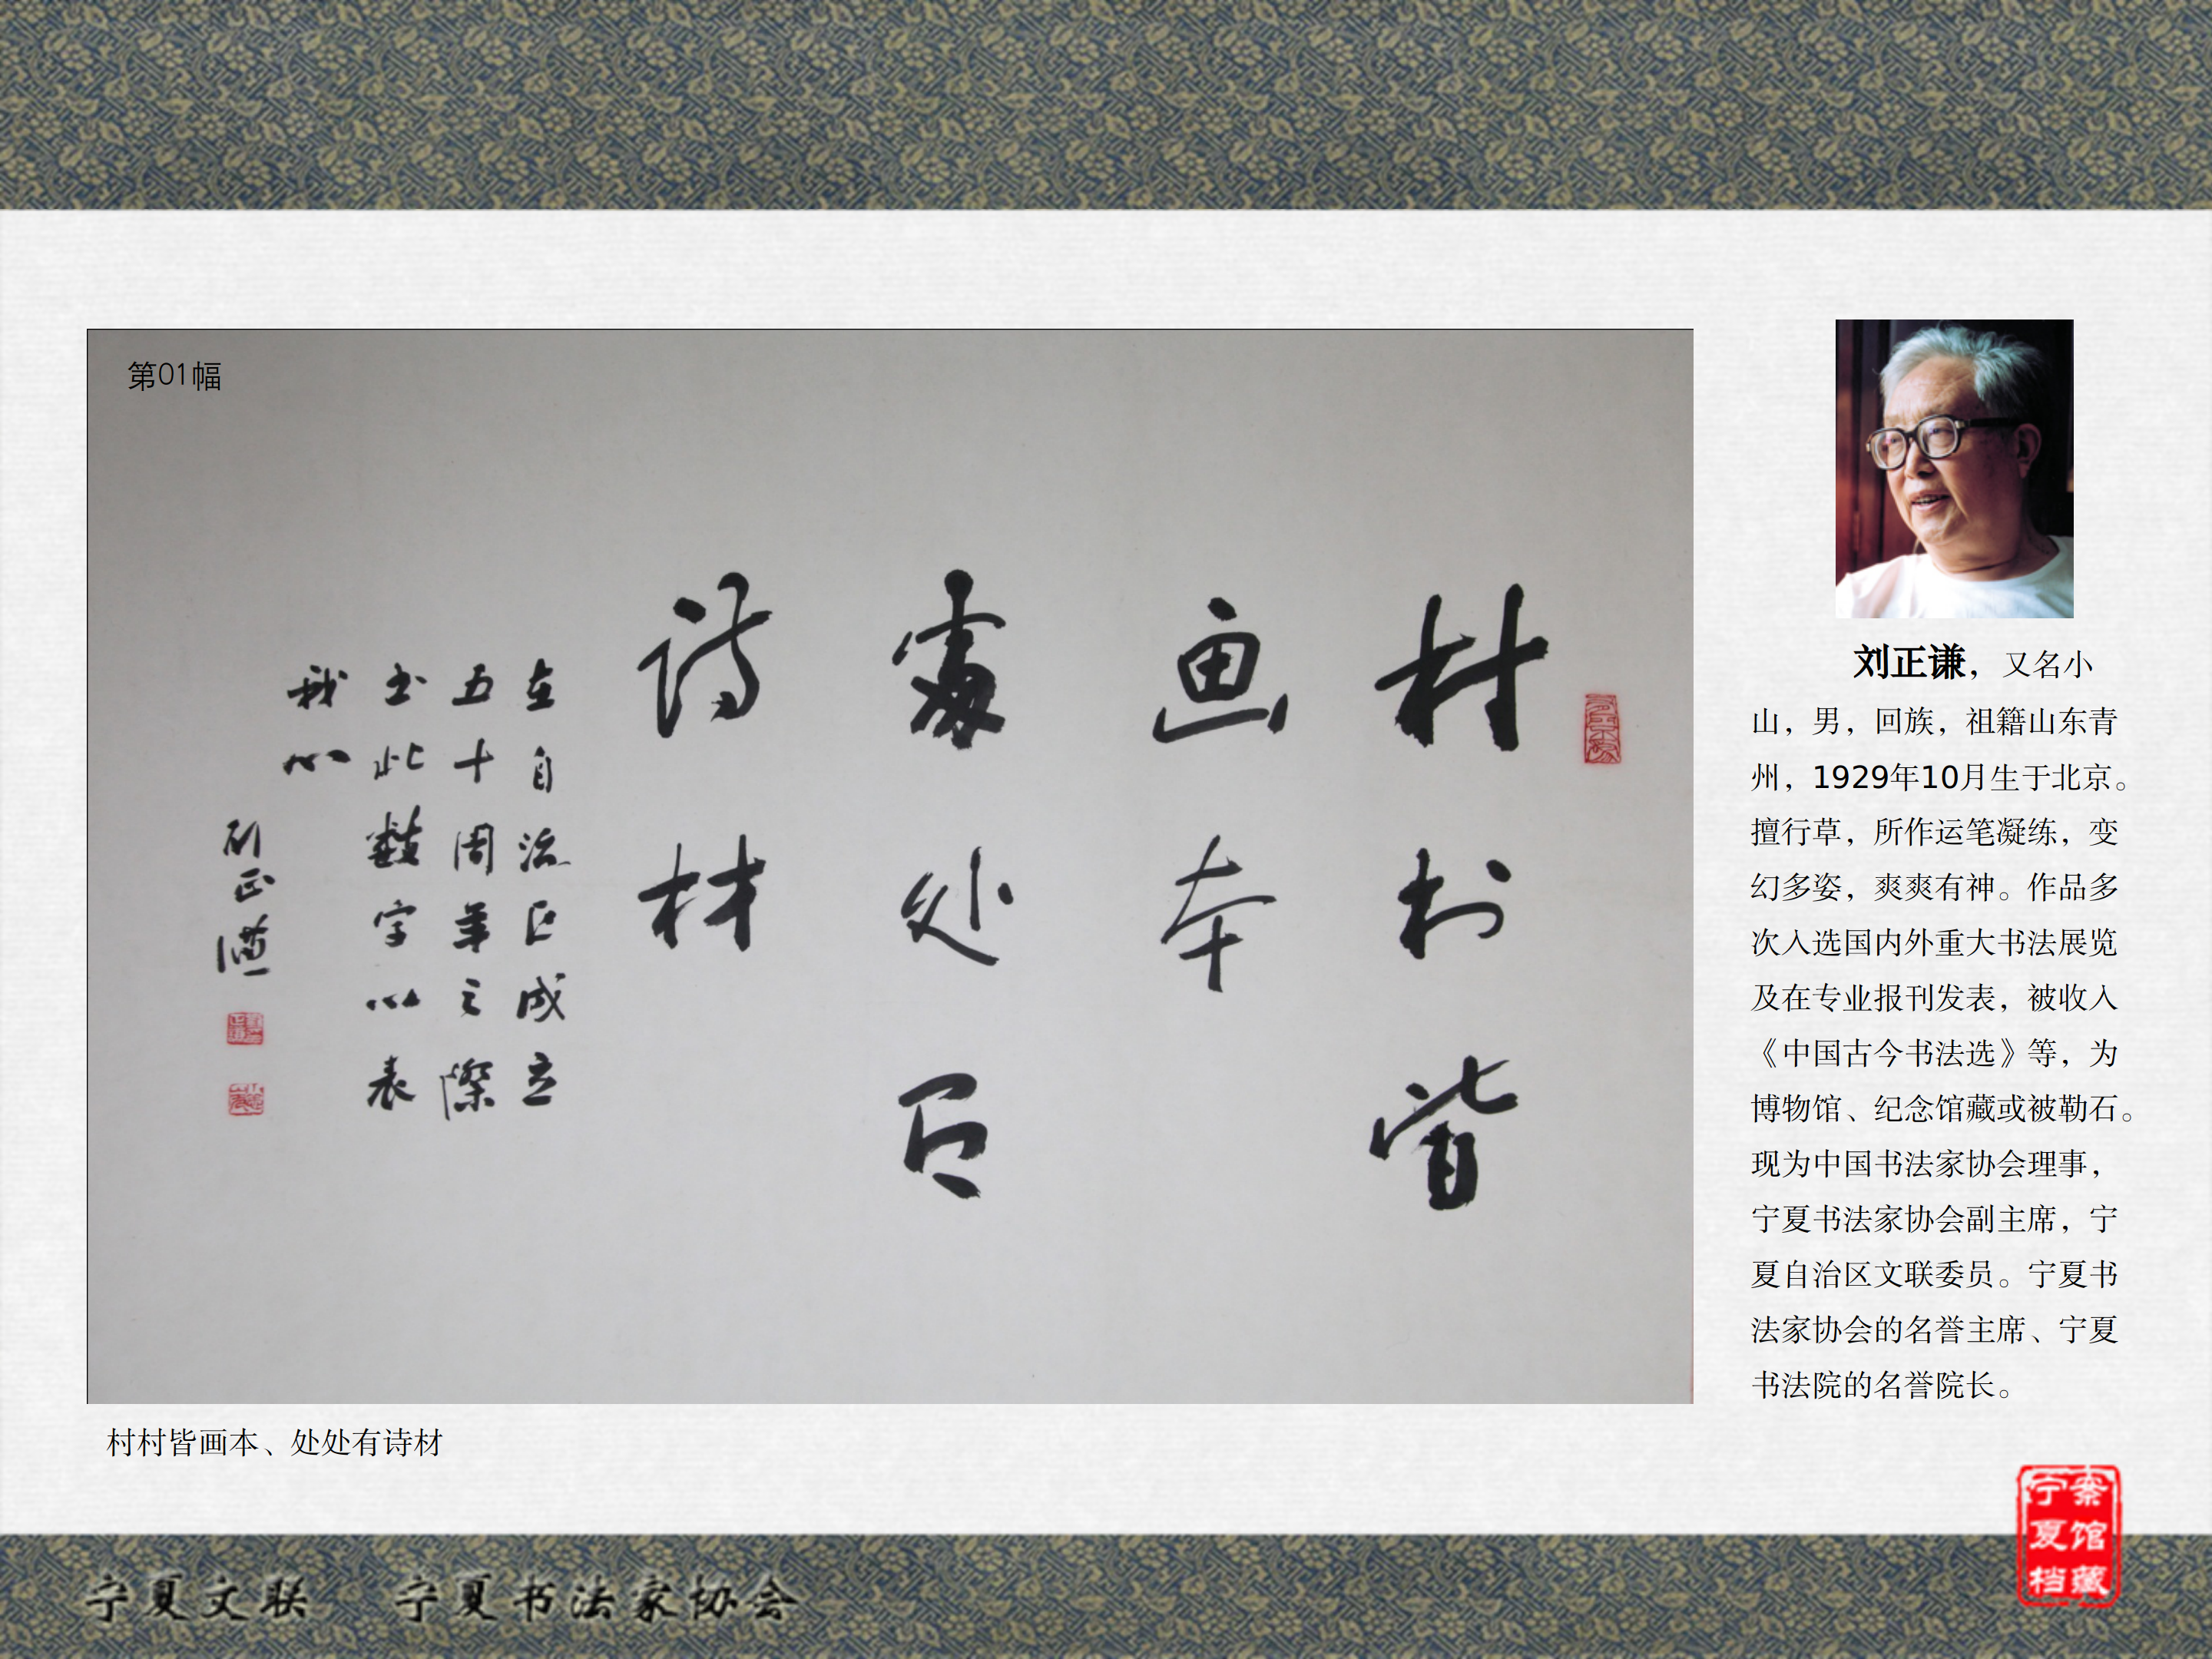 第01幅
村村皆
画本
處处有
诗材
在自治区成立
五十周年之際
书此数字以表
我心
刘正谦
村村皆画本、处处有诗材
刘正谦，又名小
山，男，回族，祖籍山东青
州，1929年10月生于北京。
擅行草，所作运笔凝练，变
幻多姿，爽爽有神。作品多
次入选国内外重大书法展览
及在专业报刊发表，被收入
《中国古今书法选》等，为
博物馆、纪念馆藏或被勒石。
现为中国书法家协会理事，
宁夏书法家协会副主席，宁
夏自治区文联委员。宁夏书
法家协会的名誉主席、宁夏
书法院的名誉院长。
宁夏文联 宁夏书法家协会
宁夏档案馆藏